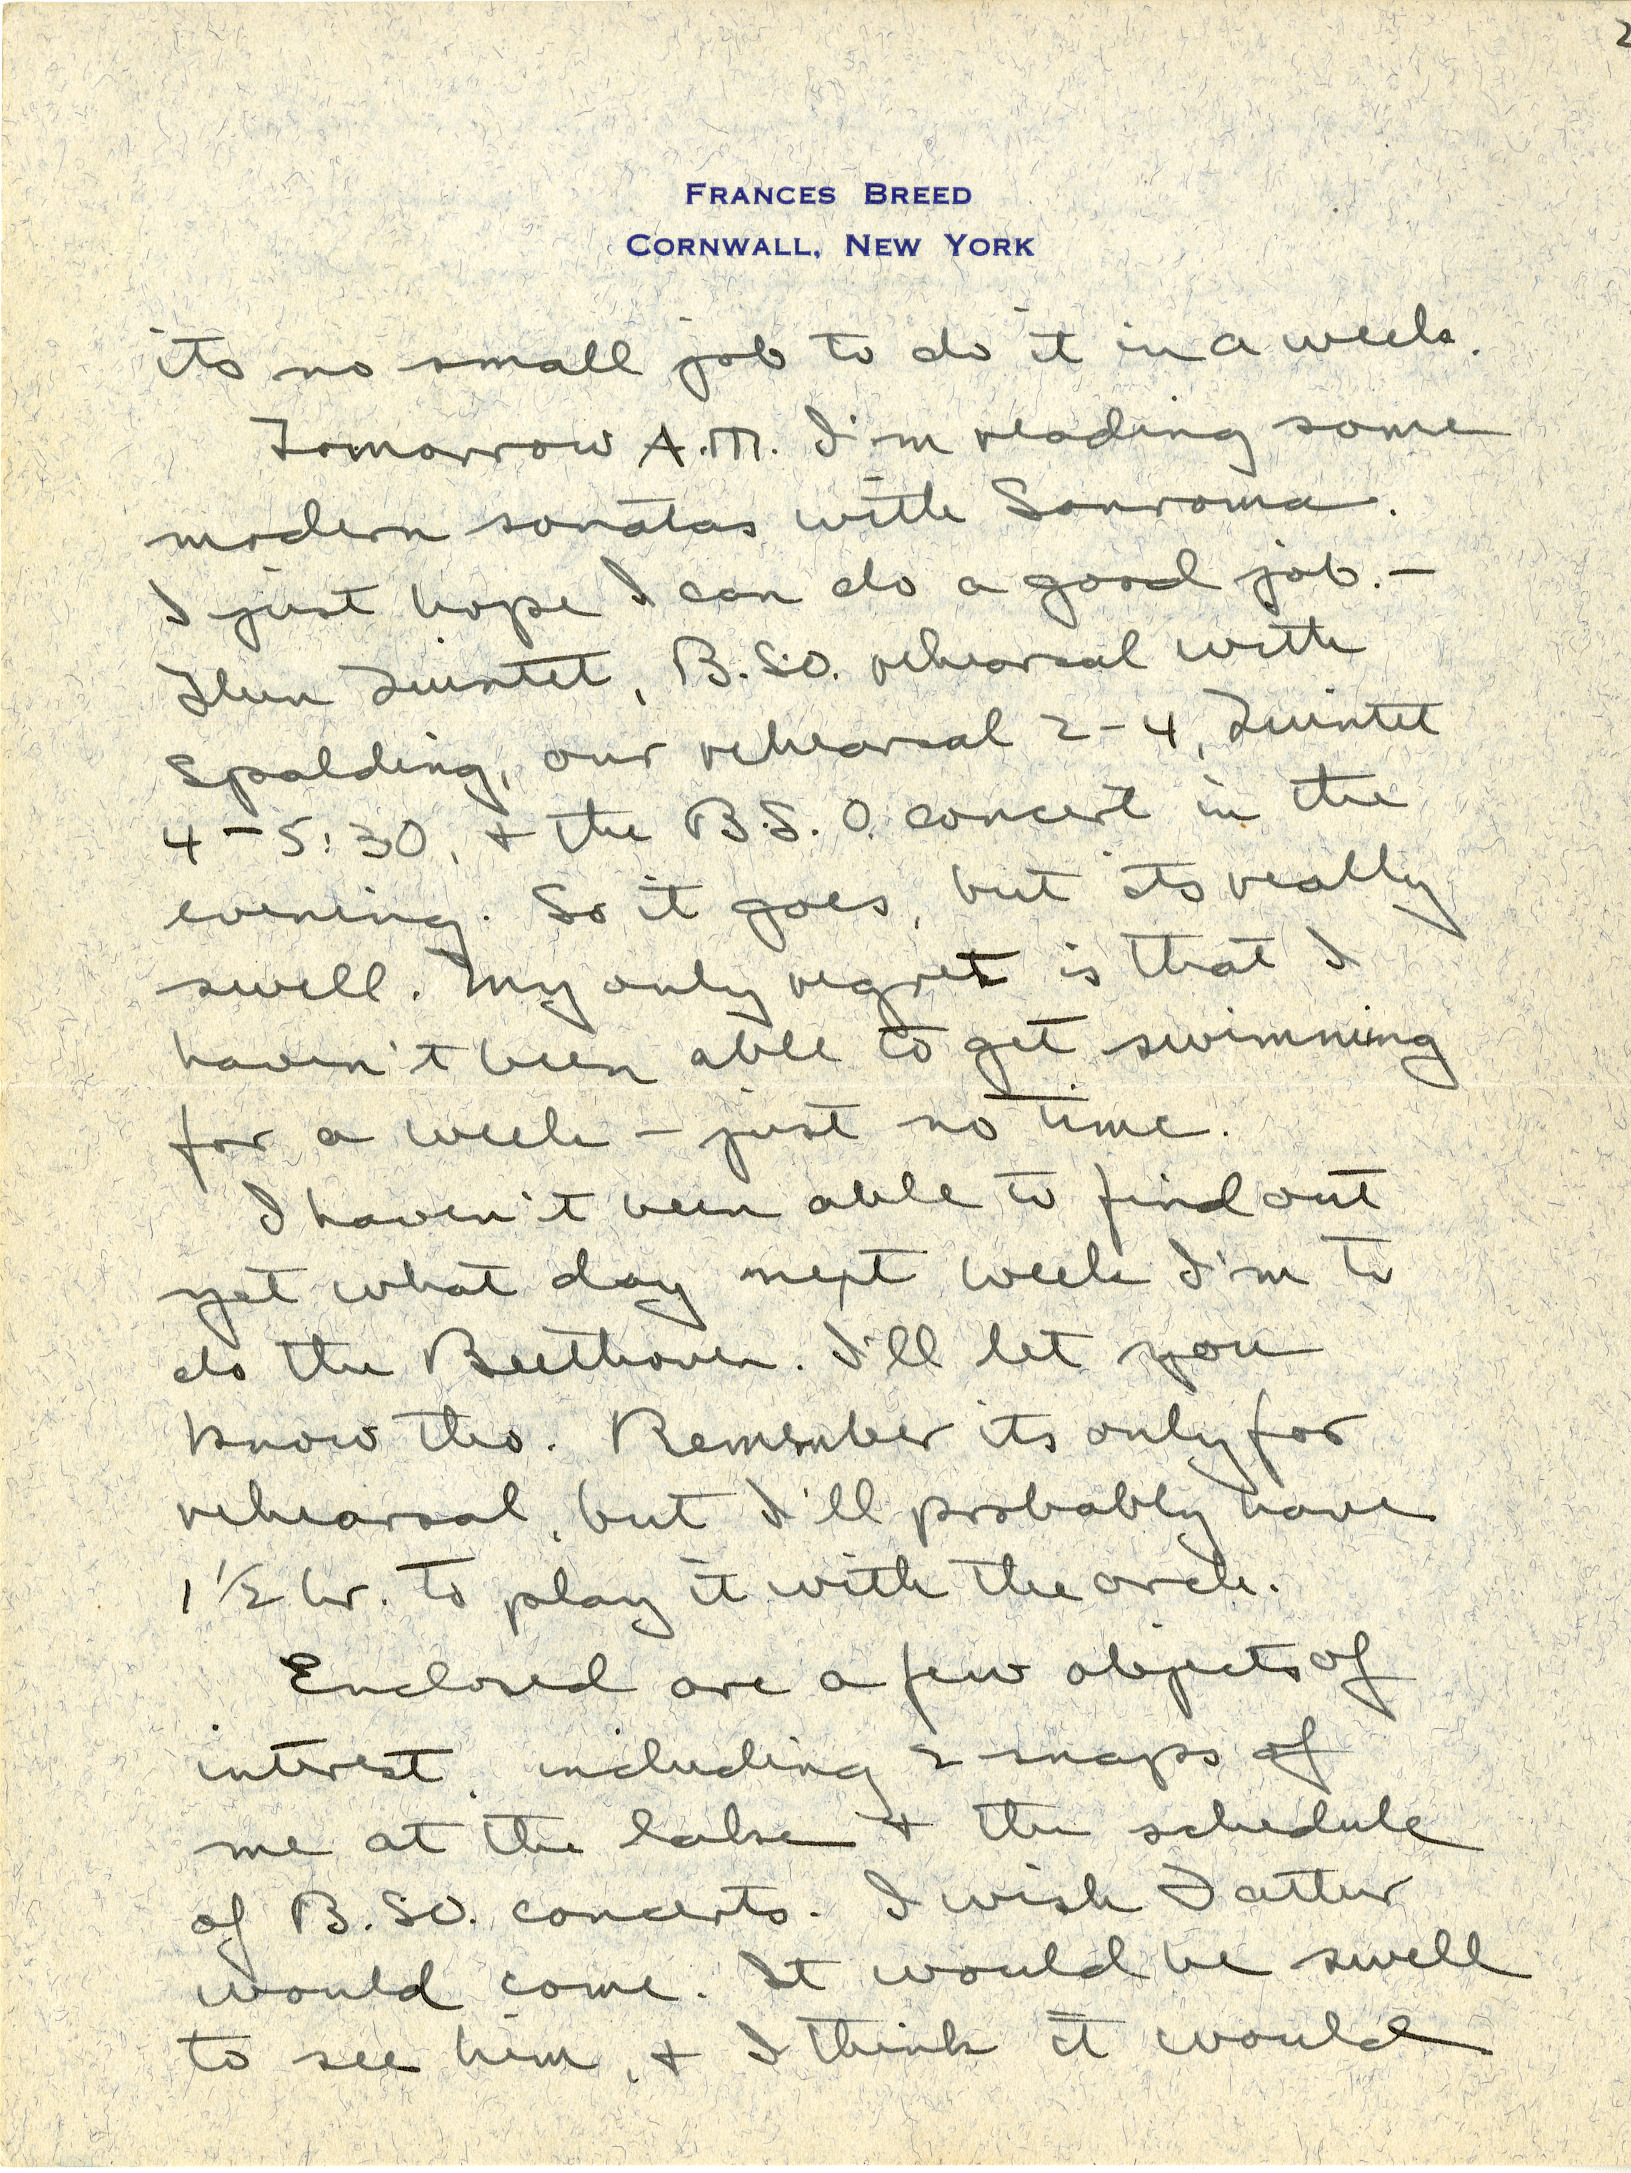 2
FRANCES BREED
CORNWALL, NEW YORK
its no small job to do it in a week.
Tomorrow A.M. I'm reading some
modern sonatas with Sanroma.
I just hope I can do a good job.-
Then Quintet, B.S.O. rehearsal with
Spalding, our rehearsal 2-4, Quintet
4-5:30, + the B.S.O. concert in the
evening. So it goes, but its really
swell. My only regret is that I
haven't been able to get swimming
for a week - just no time.
I haven't been able to find out
yet what day next week I'm to
do the Beethoven. I'll let you
know tho. Remember its only for
rehearsal, but I'll probably have
1 1/2 hr. to play it with the orch.
Enclosed are a few objects of
interest, including 2 snaps of
me at the lake + the schedule
of B.S.O. concerts. I wish Father
would come. It would be swell
to see him, + I think it would